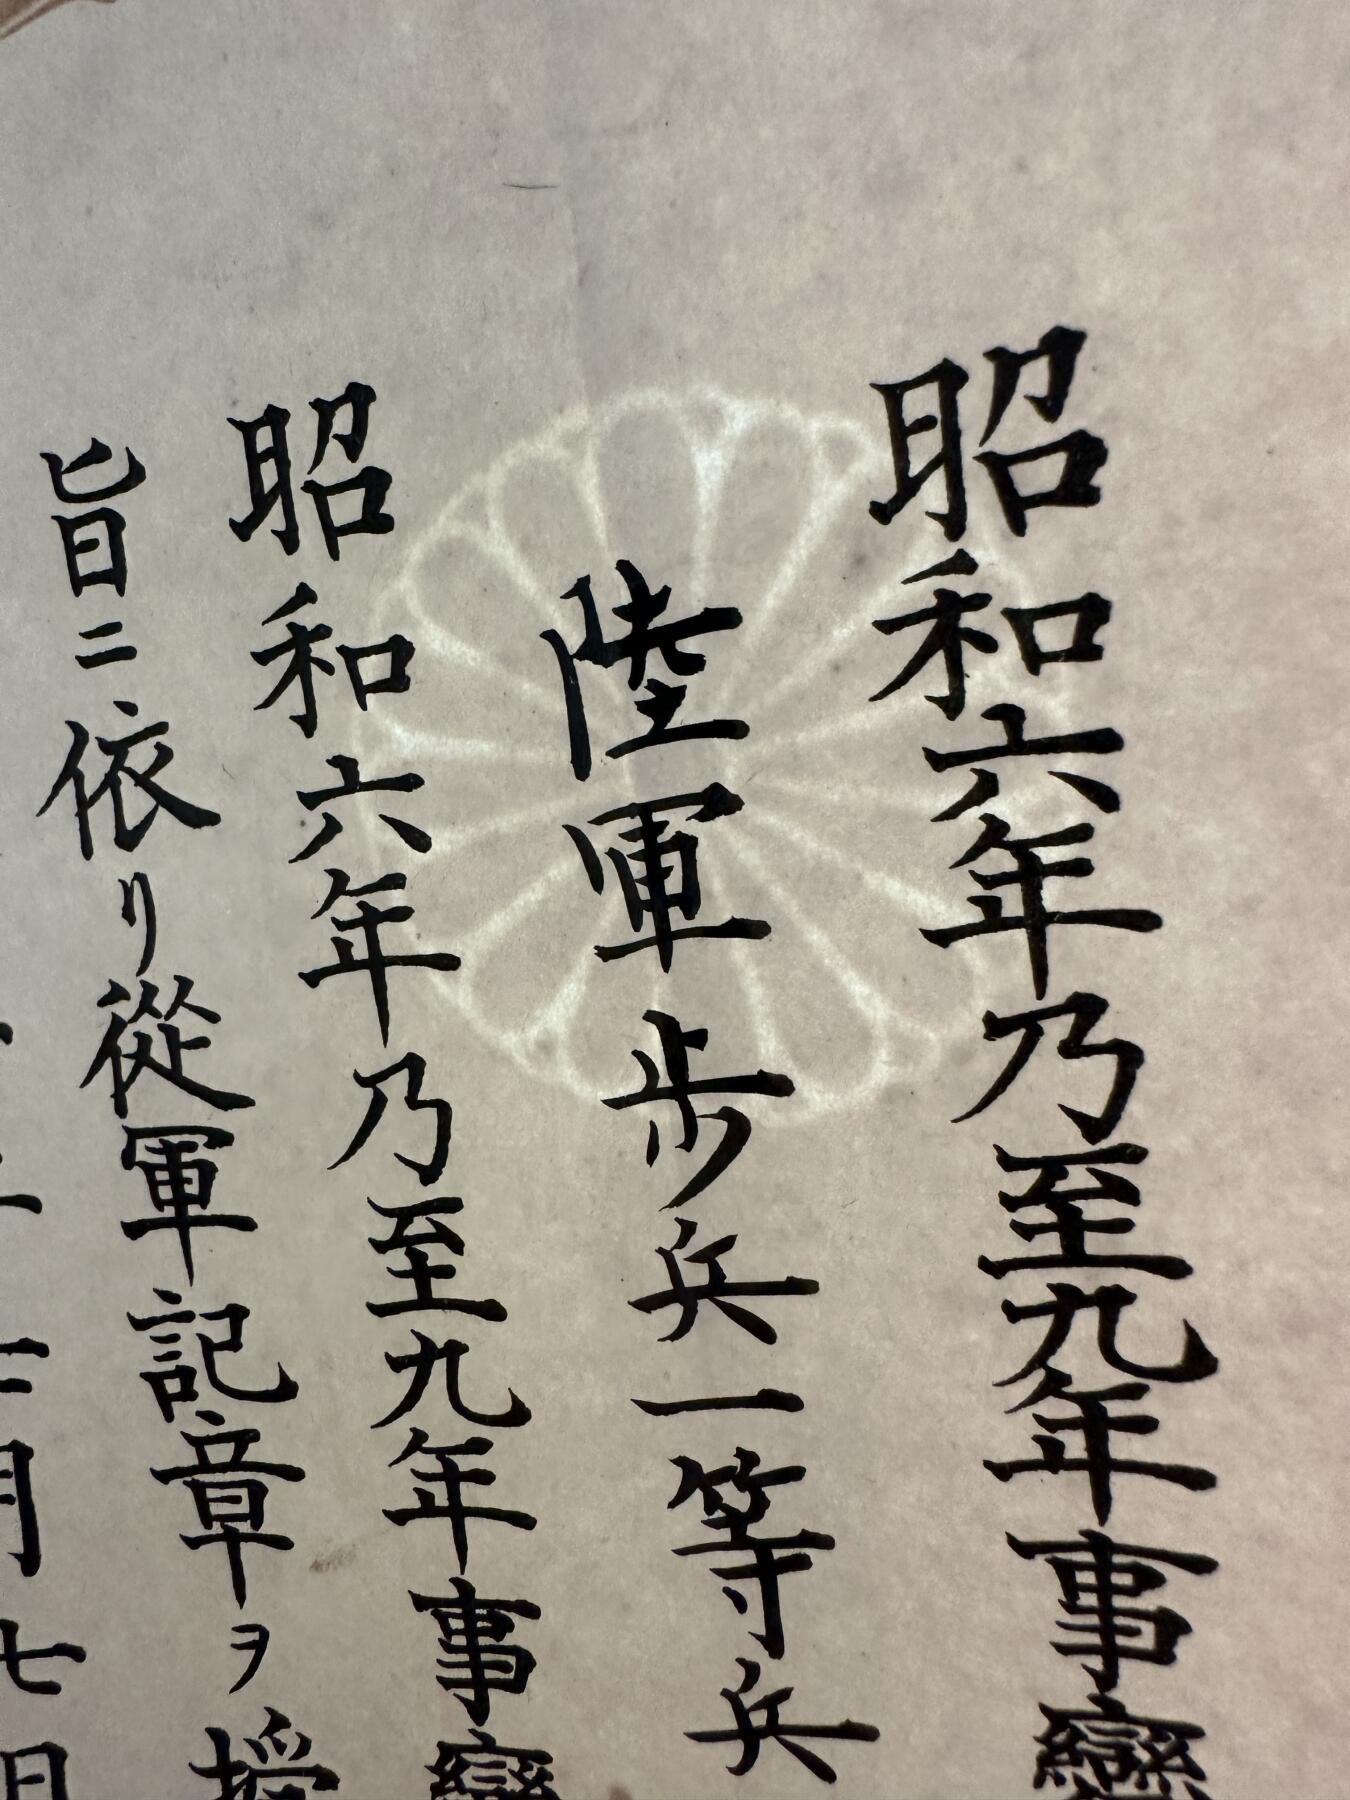 昭和六年乃至九年事變
陸軍歩兵一等兵
昭和六年乃至九年事變
旨ニ依リ從軍記章ヲ授
月七日